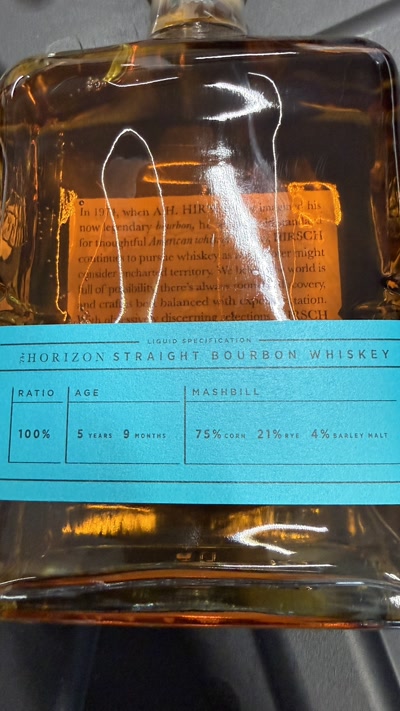 In 1974, when A.H. HIRSCH imagined his
now legendary bourbon, he
for thoughtful American whi HIRSCH
continues to pursue whiskey as might
consider unchar territory. We be world is
full of possibility, there's always room discovery,
and craft best balanced with exp tation.
discerning selection HIRSCH
LIQUID SPECIFICATION
THE HORIZON STRAIGHT BOURBON WHISKEY
RATIO AGE MASHBILL
100% 5 YEARS 9 MONTHS 75% CORN 21% RYE 4% BARLEY MALT